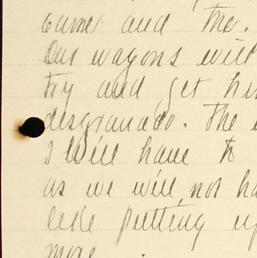 and the.
Our wagons will
try and get his
desgranado. The
I will have to
as we will not ha
like putting up
more.